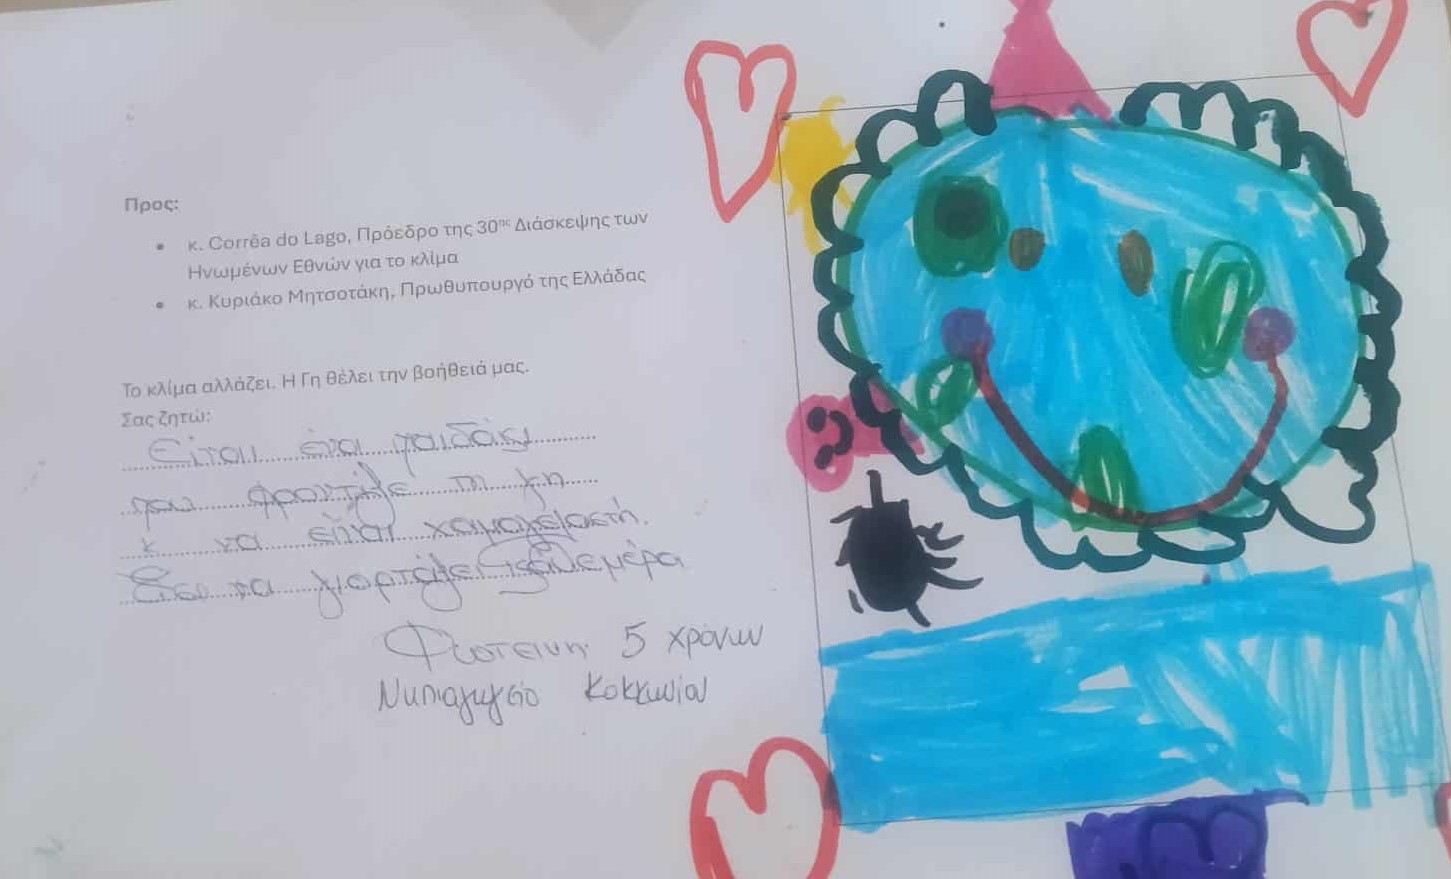 Προς:
• κ. Corrêa do Lago, Πρόεδρο της 30ης Διάσκεψης των
Ηνωμένων Εθνών για το κλίμα
• κ. Κυριάκο Μητσοτάκη, Πρωθυπουργό της Ελλάδας
Το κλίμα αλλάζει. Η Γη θέλει την βοήθειά μας.
Σας ζητώ:
Είται ένα παιδάκι
που φροντηζε τη γη
κ να είναι χαμογελαστή.
να γιορτάζει κάθε μέρα
Φωτεινη 5 χρονων
Νηπιαγωγείο